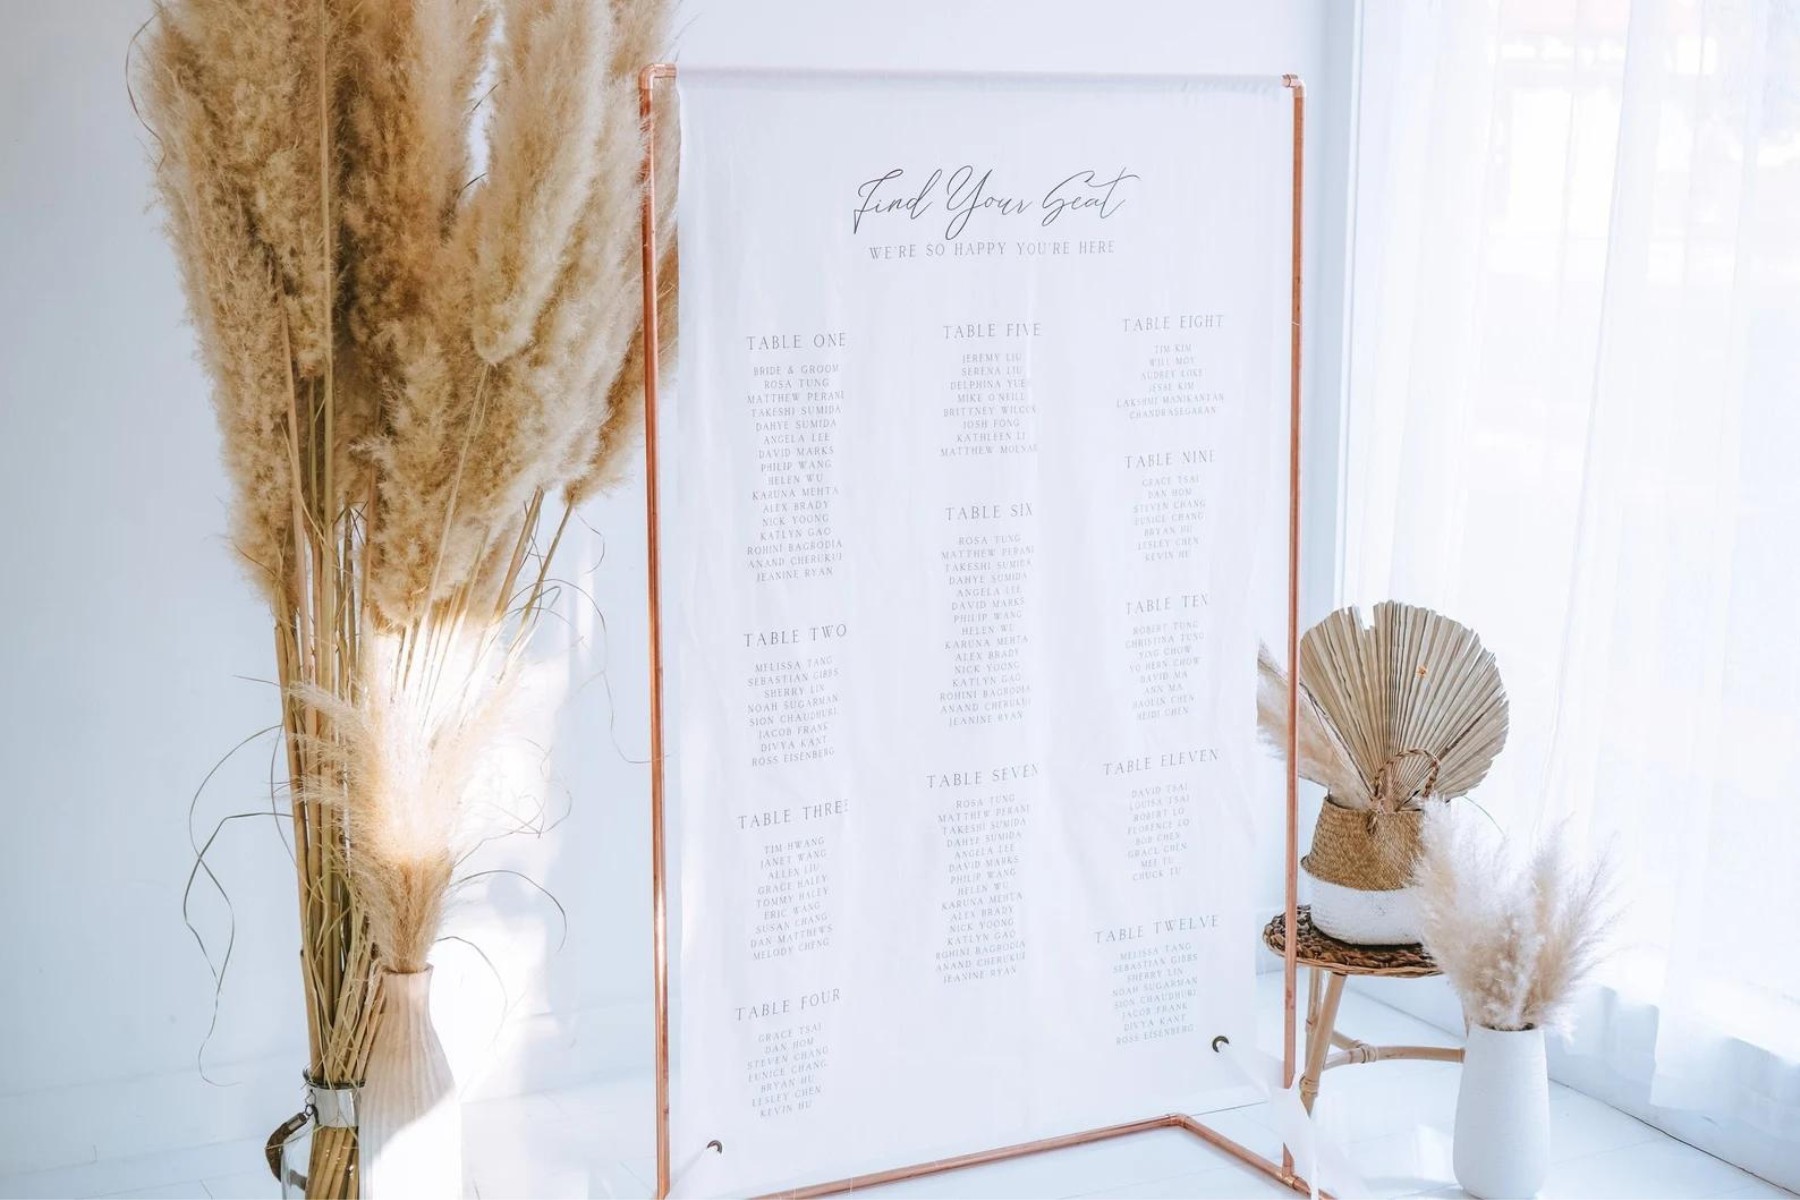 Find Your Seat
WE'RE SO HAPPY YOU'RE HERE
TABLE ONE
BRIDE & GROOM
ROSA TUNG
MATTHEW PERANI
TAKESHI SUMIDA
DAHYE SUMIDA
ANGELA LEE
DAVID MARKS
PHILIP WANG
HELEN WU
KARUNA MEHTA
ALEX BRADY
NICK YOONG
KATLYN GAO
ROHINI BAGRODIA
ANAND CHERUKUI
JEANINE RYAN
TABLE TWO
MELISSA TANG
SEBASTIAN GIBBS
SHERRY LIN
NOAH SUGARMAN
SION CHAUDHURI
JACOB FRANK
DIVYA KANT
ROSS EISENBERG
TABLE THREE
TIM HWANG
JANET WANG
ALLEX LIU
GRACE HALEY
TOMMY HALEY
ERIC WANG
SUSAN CHANG
DAN MATTHEWS
MELODY CHENG
TABLE FOUR
GRACE TSAI
DAN HOM
STEVEN CHANG
EUNICE CHANG
BRYAN HU
LESLEY CHEN
KEVIN HU
TABLE FIVE
JEREMY LIU
SERENA LIU
DELPHINA YUEN
MIKE O'NEILL
BRITTNEY WILCOX
JOSH FONG
KATHLEEN LI
MATTHEW
TABLE SIX
ROSA TUNG
MATTHEW PERANI
TAKESHI SUMIDA
DAHYE SUMIDA
ANGELA LEE
DAVID MARKS
PHILIP WANG
HELEN WU
KARUNA MEHTA
ALEX BRADY
NICK YOONG
KATLYN GAO
ROHINI BAGRODIA
ANAND CHERUKUI
JEANINE RYAN
TABLE SEVEN
ROSA TUNG
MATTHEW PERANI
TAKESHI SUMIDA
DAHYE SUMIDA
ANGELA LEE
DAVID MARKS
PHILIP WANG
HELEN WU
KARUNA MEHTA
ALEX BRADY
NICK YOONG
KATLYN GAO
ROHINI BAGRODIA
ANAND CHERUKUI
JEANINE RYAN
TABLE EIGHT
TIM KIM
WILL MOY
AUDREY LUKE
JESSE KIM
LAKSHMI MANIKANTAN
CHANDRASEGARAN
TABLE NINE
GRACE TSAI
DAN HOM
STEVEN CHANG
EUNICE CHANG
BRYAN HU
LESLEY CHEN
KEVIN HU
TABLE TEN
ROBERT TUNG
CHRISTINA TUNG
YING CHOW
YU HERN CHOW
DAVID MA
ANN MA
HAOLIN CHEN
HEIDI CHEN
TABLE ELEVEN
DAVID TSAI
LOUISA TSAI
ROBERT LO
FLORENCE LO
BOB CHEN
GRACE CHEN
MEE TU
CHUCK TU
TABLE TWELVE
MELISSA TANG
SEBASTIAN GIBBS
SHERRY LIN
NOAH SUGARMAN
SION CHAUDHURI
JACOB FRANK
DIVYA KANT
ROSS EISENBERG